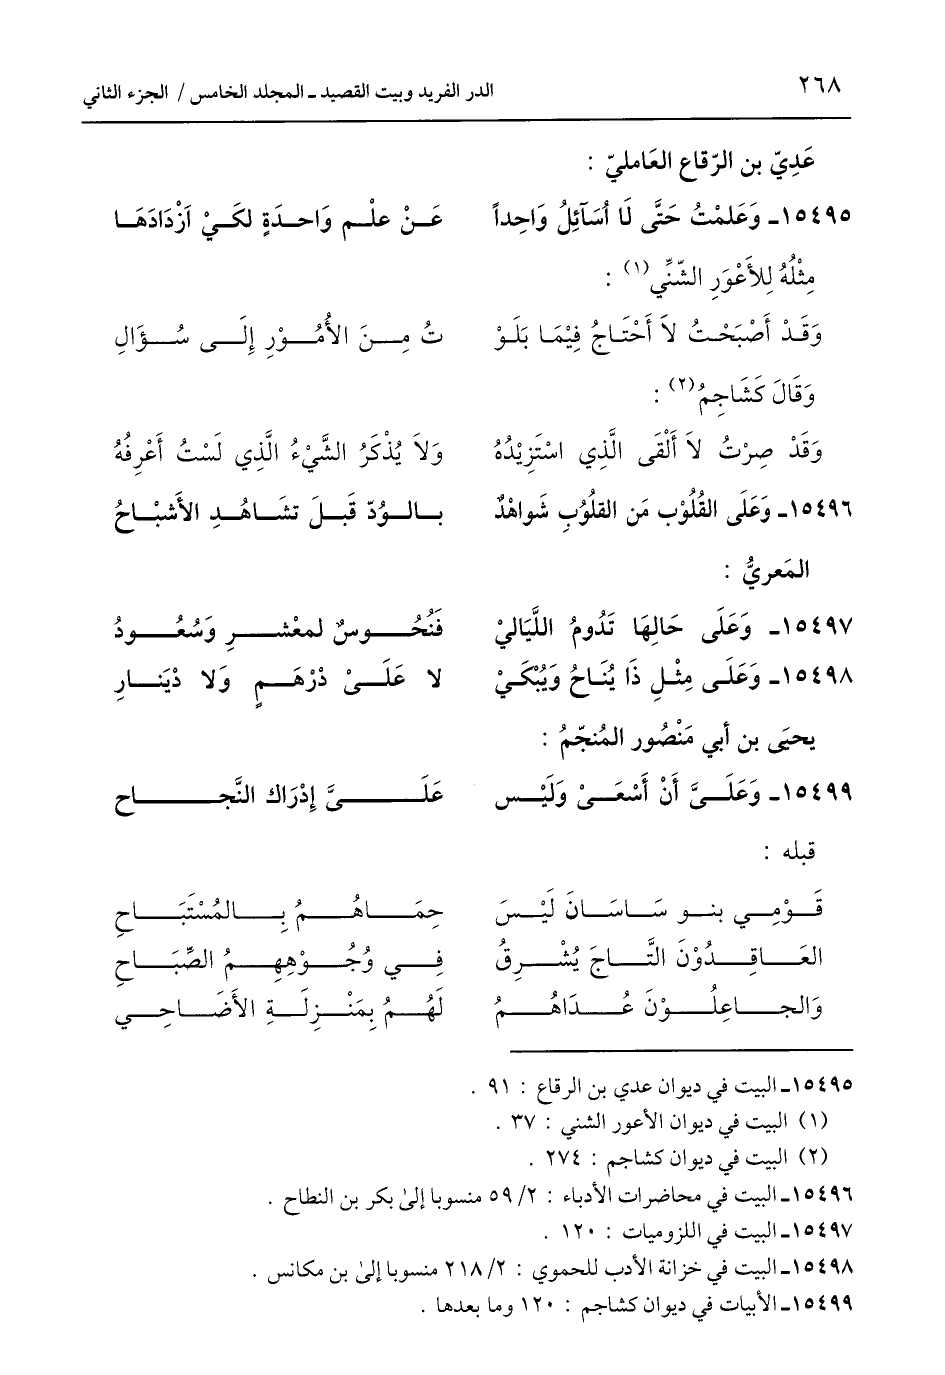 ٢٦٨ الدر الفريد وبيت القصيد ـ المجلد الخامس / الجزء الثاني
عَدِيّ بن الرّقاع العَامليّ :
١٥٤٩٥ـ وَعَلمْتُ حَتَّى لَا أسَآئِلُ وَاحِداً عَنْ علْم وَاحدَةٍ لكَيْ اَزْدَادَهَا
مِثْلُهُ لِلأَعْوَرِ الشّنِّي(١) :
وَقَدْ أَصْبَحْتُ لاَ أَحْتَاجُ فِيْمَا بَلَوْ تُ مِنَ الأُمُوْرِ إِلَى سُؤَالِ
وَقَالَ كَشَاجِمُ(٢) :
وَقَدْ صِرْتُ لاَ أَلْقَى الَّذِي اسْتَزِيْدُهُ وَلاَ يُذْكَرُ الشَّيْءُ الَّذِي لَسْتُ أَعْرِفُهُ
١٥٤٩٦ـ وَعَلَى القُلُوْب مَن القلُوُبِ شَواهْدٌ بالوُدّ قَبلَ تشَاهُدِ الأَشْبْاحُ
المَعريُّ :
١٥٤٩٧ـ وَعَلَى حَالِهَا تَدُومُ اللَّيَاليْ فَنُحُوسٌ لمعْشرِ وَسُعُودُ
١٥٤٩٨ـ وَعَلَى مِثْلِ ذَا يُنَاحُ وَيُبْكَيْ لا عَلَىْ دْرْهَمٍ وَلا دْيَنارِ
يحيَى بن أبي مَنْصُور المُنجّمُ :
١٥٤٩٩ـ وَعَلَىَّ أَنْ أَسْعَىْ وَلَيْس عَلَىَّ إدْرَاكَ النَّجاحِ
قبله :
قَوْمِي بنو سَاسَانَ لَيْسَ حِمَاهُمُ بِالمُسْتَبَاحِ
العَاقِدُوْنَ التَّاجَ يُشْرِقُ فِي وُجُوْهِهِمُ الصِّبَاحِ
وَالجاعِلُوْنَ عُدَاهُمُ لَهُمُ بِمَنْزِلَةِ الأَضَاحِي
١٥٤٩٥ـ البيت في ديوان عدي بن الرقاع : ٩١ .
(١) البيت في ديوان الأعور الشني : ٣٧ .
(٢) البيت في ديوان كشاجم : ٢٧٤ .
١٥٤٩٦ـ البيت في محاضرات الأدباء : ٥٩/٢ منسوبا إلىٰ بكر بن النطاح .
١٥٤٩٧ـ البيت في اللزوميات : ١٢٠ .
١٥٤٩٨ـ البيت في خزانة الأدب للحموي : ٢١٨/٢ منسوبا إلىٰ بن مكانس .
١٥٤٩٩ـ الأبيات في ديوان كشاجم : ١٢٠ وما بعدها .